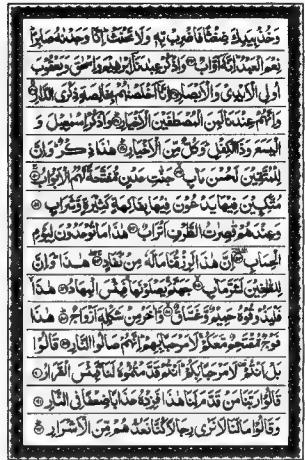 وَخُذْ بِيَدِكَ ضِغْثًا فَاضْرِبْ بِّهٖ وَلَا تَحْنَثْ ؕ اِنَّا وَجَدْنٰهُ صَابِرًا ؕ
نِعْمَ الْعَبْدُ ؕ اِنَّهٗۤ اَوَّابٌ ۝ وَاذْكُرْ عِبٰدَنَاۤ اِبْرٰهِيْمَ وَاِسْحٰقَ وَيَعْقُوْبَ
اُولِى الْاَيْدِىْ وَالْاَبْصَارِ ۝ اِنَّاۤ اَخْلَصْنٰهُمْ بِخَالِصَةٍ ذِكْرَى الدَّارِ ۝
وَاِنَّهُمْ عِنْدَنَا لَمِنَ الْمُصْطَفَيْنَ الْاَخْيَارِ ۝ وَاذْكُرْ اِسْمٰعِيْلَ وَ
الْيَسَعَ وَذَا الْكِفْلِ ؕ وَكُلٌّ مِّنَ الْاَخْيَارِ ۝ هٰذَا ذِكْرٌ ؕ وَاِنَّ
لِلْمُتَّقِيْنَ لَحُسْنَ مَاٰبٍ ۝ جَنّٰتِ عَدْنٍ مُّفَتَّحَةً لَّهُمُ الْاَبْوَابُ ۝
مُتَّكِـِٕيْنَ فِيْهَا يَدْعُوْنَ فِيْهَا بِفَاكِهَةٍ كَثِيْرَةٍ وَّشَرَابٍ ۝
وَعِنْدَهُمْ قٰصِرٰتُ الطَّرْفِ اَتْرَابٌ ۝ هٰذَا مَا تُوْعَدُوْنَ لِيَوْمِ
الْحِسَابِ ۝ اِنَّ هٰذَا لَرِزْقُنَا مَا لَهٗ مِنْ نَّفَادٍ ۝ هٰذَا ؕ وَاِنَّ
لِلطّٰغِيْنَ لَشَرَّ مَاٰبٍ ۝ جَهَنَّمَ ۚ يَصْلَوْنَهَا ۚ فَبِئْسَ الْمِهَادُ ۝ هٰذَا ۙ
فَلْيَذُوْقُوْهُ حَمِيْمٌ وَّغَسَّاقٌ ۝ وَّاٰخَرُ مِنْ شَكْلِهٖۤ اَزْوَاجٌ ۝ هٰذَا
فَوْجٌ مُّقْتَحِمٌ مَّعَكُمْ ۚ لَا مَرْحَبًۢا بِهِمْ ؕ اِنَّهُمْ صَالُوا النَّارِ ۝ قَالُوْا
بَلْ اَنْتُمْ ۫ لَا مَرْحَبًۢا بِكُمْ ؕ اَنْتُمْ قَدَّمْتُمُوْهُ لَنَا ۚ فَبِئْسَ الْقَرَارُ ۝
قَالُوْا رَبَّنَا مَنْ قَدَّمَ لَنَا هٰذَا فَزِدْهُ عَذَابًا ضِعْفًا فِى النَّارِ ۝
وَقَالُوْا مَا لَنَا لَا نَرٰى رِجَالًا كُنَّا نَعُدُّهُمْ مِّنَ الْاَشْرَارِ ۝